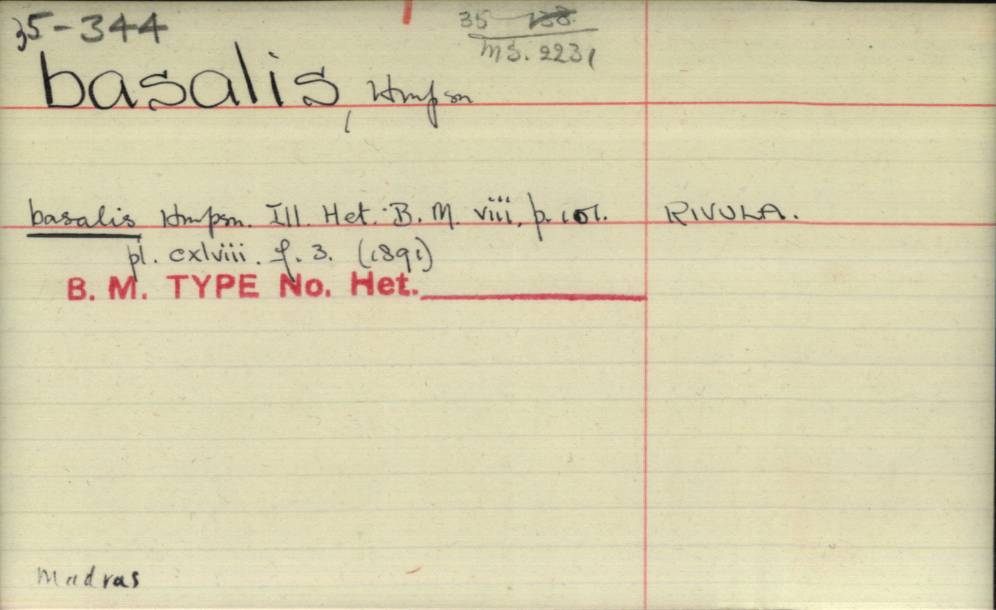 35-344
35 138
MS. 2231
basalis, Hmpsn
basalis Hmpsn. Ill. Het. B. M. viii, p. 101. RIVULA.
pl. cxlviii. f. 3. (1891)
B. M. TYPE No. Het.
Madras